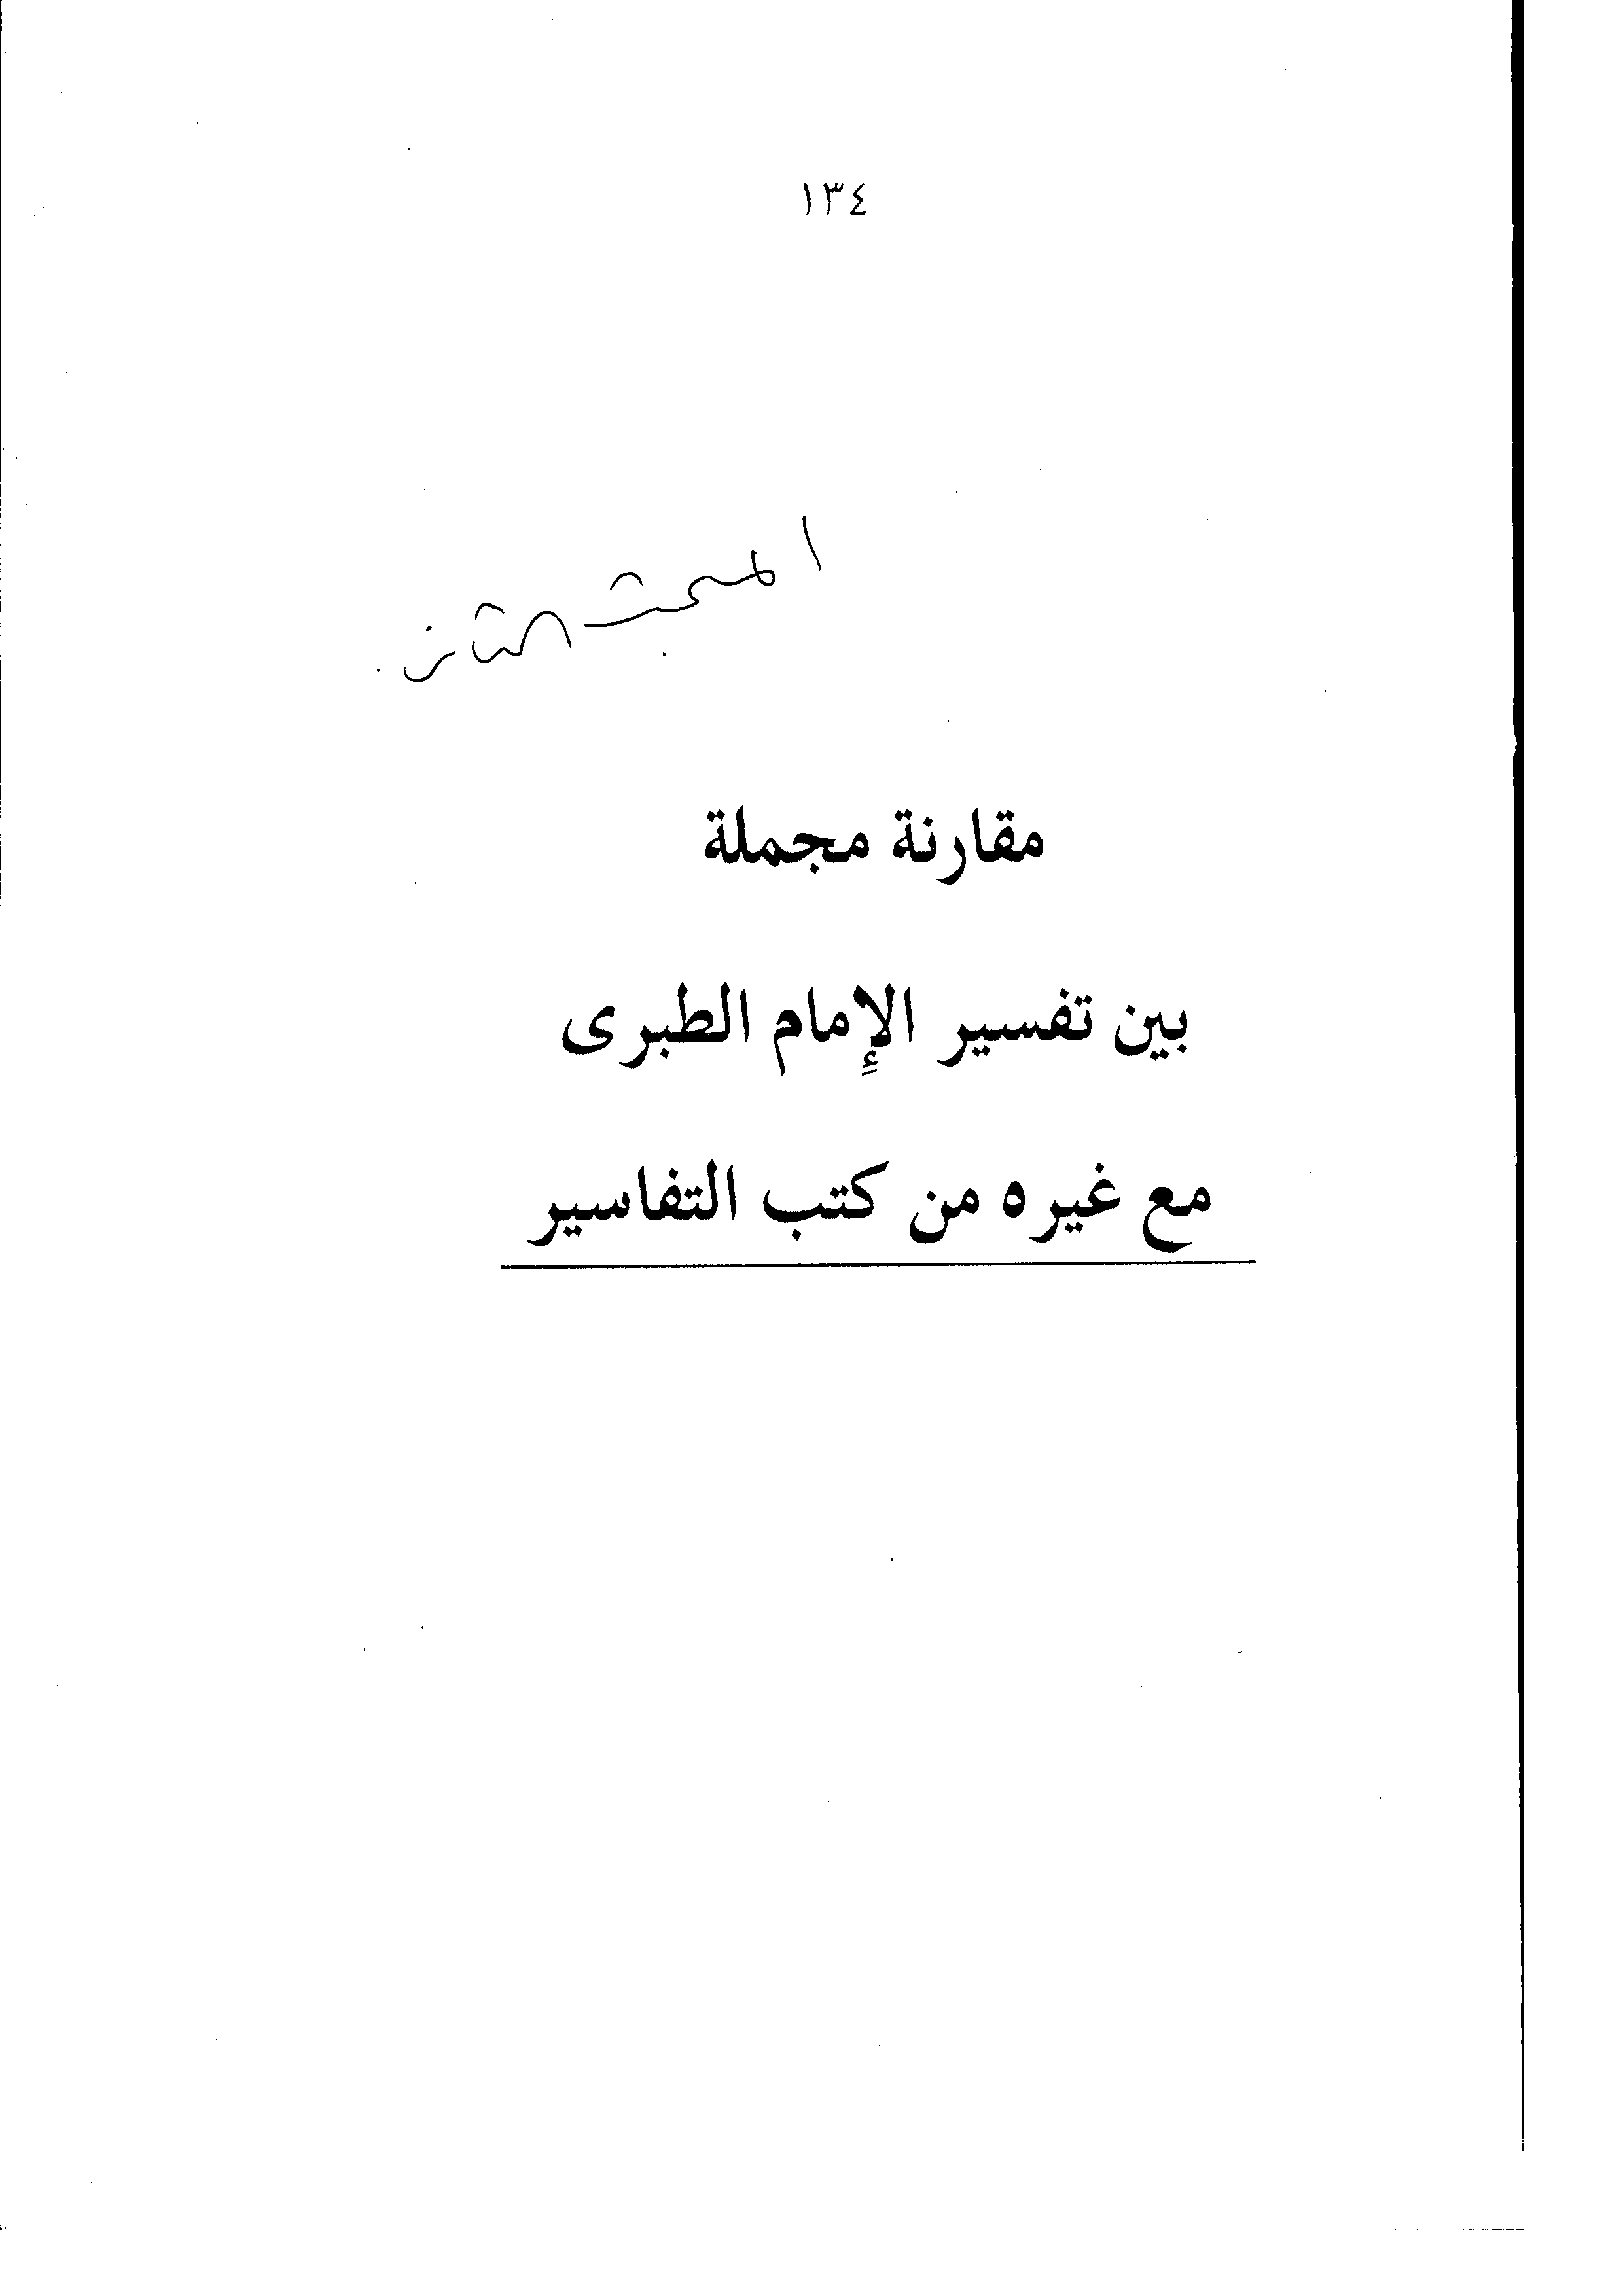 ١٣٤
المبحث الثاني
مقارنة مجملة
بين تفسير الإمام الطبرى
مع غيره من كتب التفاسير